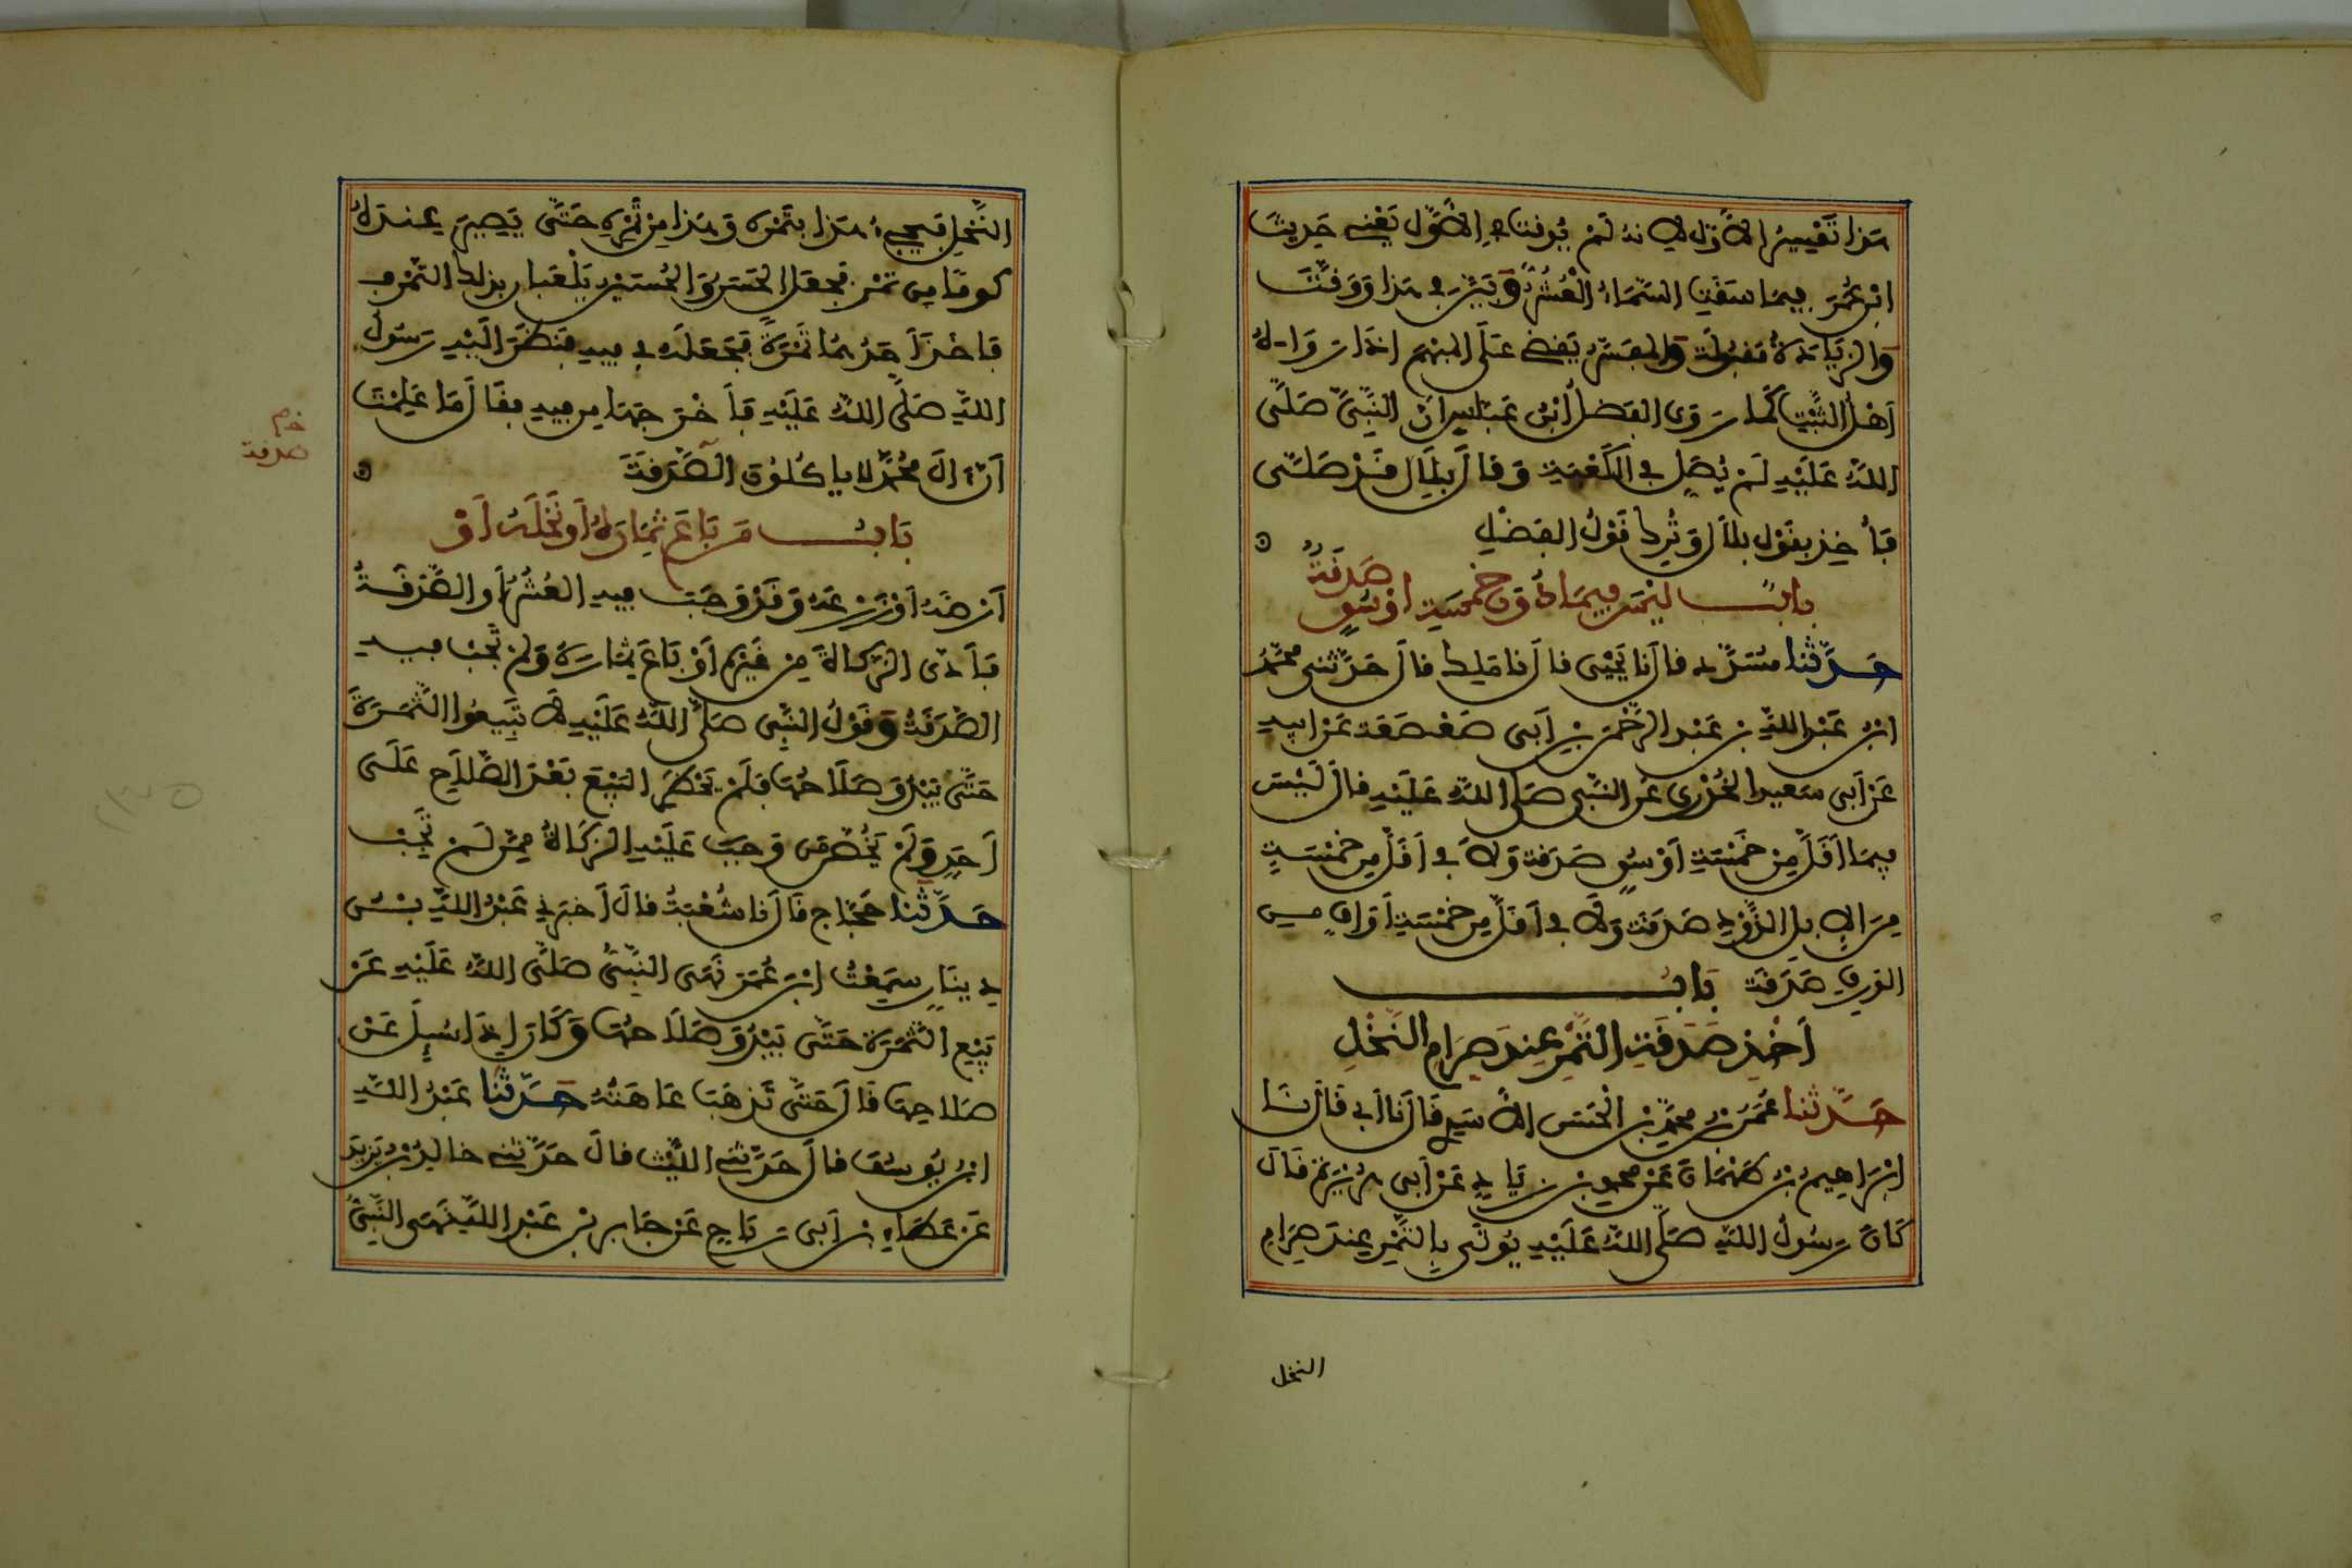 هَذا تَفْسِيرُ الأَوّلِ لِأنهُ لَمْ يُوَقت في الأَوَّلِ يَعْنِي حَدِيثَ
ابْنِ عُمَرَ فِيمَا سَقَتِ السَّمَاءُ الْعُشُرُ وَبَيَّنَ في هَذا وَوَقَّتَ
وَالزِّيَادَةُ مَقبُولَة وَالمفَسَّرُ يَقضِي عَلَى المبْهَمِ إذَا رَوَاهُ
أهْلُ الثَّبْتِ كَمَا رَوى الفَضلُ ابْنُ عَبَّاسٍ أنَّ النَّبِيَّ صَلَّى
اللهُ عَلَيْهِ لَمْ يُصَلِّ في الكَعْبَةِ وَقالَ بِلَالٌ قَدْ صَلَّى
فَأُخِذ بِقَوْلِ بلالٍ وَتُرِكَ قَوْلُ الفَضْلِ
بابٌ ليْسَ فِيمَا دُونَ خَمْسَةِ أوْسُقٍ صَدَقَةٌ
حَدَّثنا مُسَدَّد قالَ نا يَحْيَى قالَ نا مَلِك قالَ حَدَّثني محمّدُ
ابْنُ عَبْدِ اللهِ بْنِ عَبْدِ الرَّحْمَنِ بْنِ أبي صَعْصَعَة عَنْ أبِيهِ
عَنْ أبي سَعِيدٍ الخُدْرِي عَنِ النَّبِي صَلَّى اللهُ عَلَيْهِ قالَ لَيْسَ
فِيمَا أقَلّ مِنْ خَمْسَةِ أوْسُقٍ صَدَقَة وَلاَ في أقَلّ مِن خَمْسَةٍ
مِنَ الإبِلِ الذَّوْدِ صَدَقَة وَلاَ في أقَلّ مِن خَمْسَةِ أوَاقٍ مِن
الوَرِقِ صَدَقَة بَابُ
أخْذِ صَدَقَةِ التَّمْرِ عِنْدَ صِرَامِ النَّخْلِ
حَدَّثنا عُمَرُ بْنُ محمّدِ بْنِ الحَسَنِ الأَسَدِي قَالَ نا أبي قَالَ نَا
إبْرَاهِيمُ بْنُ طَهْمَان عَنْ محمدِ بْنِ زِيَادٍ عَنْ أبي هُرَيْرَة قَالَ
كَانَ رَسُولُ اللهِ صَلَّى اللهُ عَلَيْهِ يُوتَى بِالتَّمْرِ عِنْدَ صِرَامِ
النخل
النَّخْلِ فَيَجِيءُ هَذا بِتَمْرِهِ وَهَذا مِنْ تَمْرِهِ حَتَّى يَصِيرَ عِنْدَهُ
كومًا مِن تَمْر فَجَعَلَ الحَسَنُ وَالحُسَيْن يَلْعَبَانِ بِذلكَ التّمْرِ
فَأخَذَ أحَدُهُمَا تَمْرَةً فَجَعَلَه في فِيهِ فَنَظَرَ إلَيْهِ رَسُولُ
اللهِ صَلَّى اللهُ عَلَيْهِ فَأخْرَجَهَا مِن فِيهِ فقَالَ أمَا عَلِمْتَ
أنَّ آلَ مُحَمَّدٍ لا ياكُلُونَ الصَّدَقَةَ
بَابُ مَن بَاعَ ثِمَارَهُ أوْ نَخْلَهُ أوْ
أرْضَهُ أوْ زَرْعَهُ وَقَدْ وَجَبَ فِيهِ العُشُرُ أو الصَّدَقَةُ
فَأدّى الزَّكَاةَ مِنْ غَيْرِهِ أوْ بَاعَ ثِمَارَهُ وَلمْ تَجِبْ فِيهِ
الصَّدَقَةُ وَقَوْلُ النَّبِي صَلَّى اللهُ عَلَيْهِ لاَ تَبِيعُوا الثَّمَرَةَ
حَتَّى يَبْدُوَ صَلَاحُهَا فَلَمْ يَحْظرِ البَيْعَ بَعْدَ الصَّلَاحِ عَلَى
أحَدٍ وَلَمْ يَخُصَّ مَن وَجَبَ عَلَيْهِ الزَّكَاةُ مِمَّن لَمْ تَجِبْ
حَدَّثنا حَجَّاج قَالَ نا شُعْبَةُ قالَ أخبَرَنِي عَبْدُ اللهِ بْنُ
دِينَارٍ سَمِعْتُ ابْنَ عُمَرَ نَهَى النَّبِيُّ صَلَّى اللهُ عَلَيْهِ عَنْ
بَيْعِ الثَّمَرَةِ حَتَّى يَبْدُوَ صَلَاحُهَا وَكَانَ إذَا سُيِلَ عَنْ
صَلاحِهَا قَالَ حَتَّى تَذهَبَ عَاهَتُهُ حَدَّثنا عَبْدُ اللهِ
ابْنُ يُوسُفَ قالَ حَدَّثني اللَّيْث قالَ حَدَّثني خالِدُ بْنُ يَزِيدَ
عَنْ عَطَاءِ بْنِ أبي رَبَاح عَنْ جَابِرِ بْنِ عَبْدِ اللهِ نَهَى النَّبِيُّ
صدقة